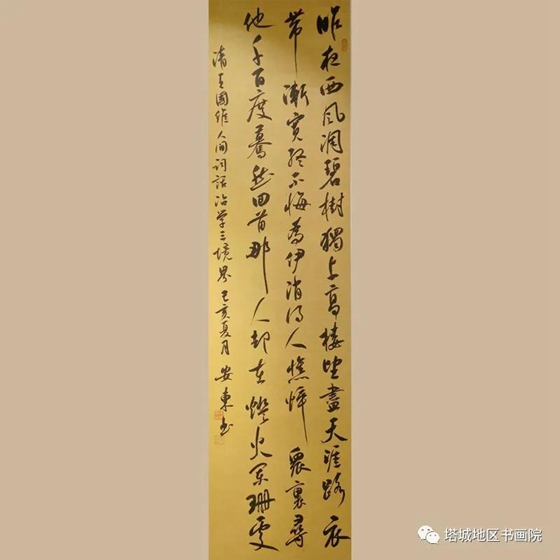 昨夜西风凋碧樹獨上高樓望盡天涯路衣
帶漸寬終不悔為伊消得人憔悴眾裏尋
他千百度驀然回首那人却在燈火闌珊處
清王國維人间词话治学三境界己亥夏月安東书
塔城地区书画院